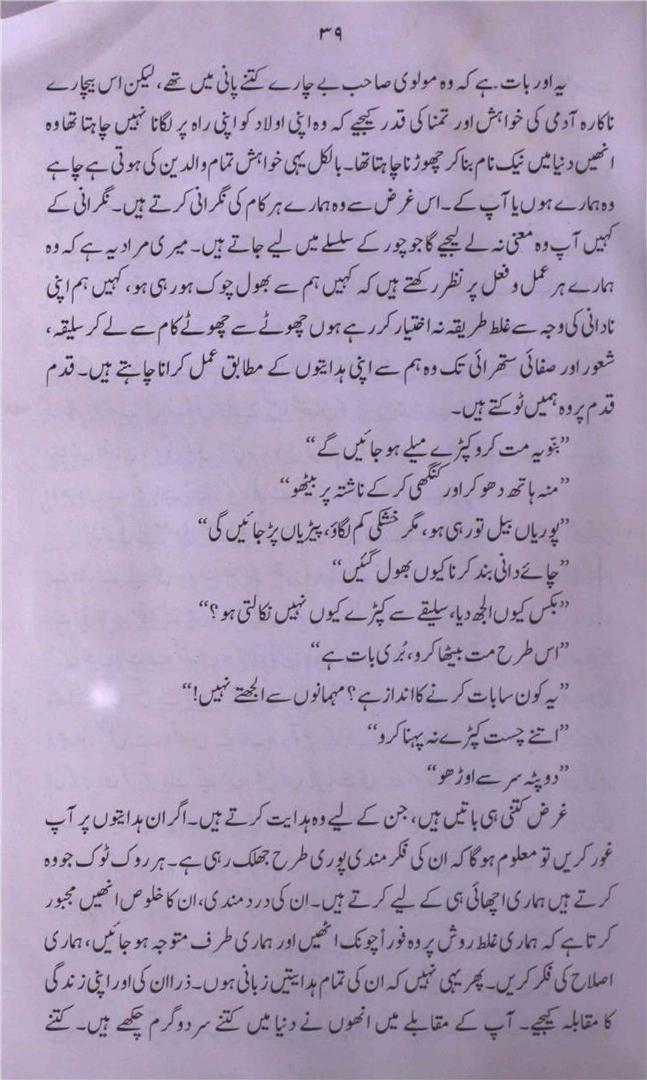 ۳۹
یہ اور بات ہے کہ وہ مولوی صاحب بے چارے کتنے پانی میں تھے، لیکن اس بیچارے
ناکارہ آدمی کی خواہش اور تمنا کی قدر کیجیے کہ وہ اپنی اولاد کو اپنی راہ پر لگانا نہیں چاہتا تھا وہ
انھیں دنیا میں نیک نام بنا کر چھوڑنا چاہتا تھا۔ بالکل یہی خواہش تمام والدین کی ہوتی ہے چاہے
وہ ہمارے ہوں یا آپ کے۔ اس غرض سے وہ ہمارے ہر کام کی نگرانی کرتے ہیں۔ نگرانی کے
کہیں آپ وہ معنی نہ لے لیجیے گا جو چور کے سلسلے میں لیے جاتے ہیں۔ میری مراد یہ ہے کہ وہ
ہمارے ہر عمل و فعل پر نظر رکھتے ہیں کہ کہیں ہم سے بھول چوک ہو رہی ہو، کہیں ہم اپنی
نادانی کی وجہ سے غلط طریقہ نہ اختیار کر رہے ہوں چھوٹے سے چھوٹے کام سے لے کر سلیقہ،
شعور اور صفائی ستھرائی تک وہ ہم سے اپنی ہدایتوں کے مطابق عمل کرانا چاہتے ہیں۔ قدم
قدم پر وہ ہمیں ٹوکتے ہیں۔
”بنّو یہ مت کرو کپڑے میلے ہو جائیں گے“
”منہ ہاتھ دھو کر اور کنگھی کر کے ناشتہ پر بیٹھو“
”پوریاں بیل تو رہی ہو، مگر خشکی کم لگاؤ، پپڑیاں پڑ جائیں گی“
”چائے دانی بند کرنا کیوں بھول گئیں“
”بکس کیوں الجھ دیا، سلیقے سے کپڑے کیوں نہیں نکالتی ہو؟“
”اس طرح مت بیٹھا کرو، بُری بات ہے“
”یہ کون سا بات کرنے کا انداز ہے؟ مہمانوں سے الجھتے نہیں!“
”اتنے چست کپڑے نہ پہنا کرو“
”دوپٹہ سر سے اوڑھو“
غرض کتنی ہی باتیں ہیں، جن کے لیے وہ ہدایت کرتے ہیں۔ اگر ان ہدایتوں پر آپ
غور کریں تو معلوم ہوگا کہ ان کی فکر مندی پوری طرح جھلک رہی ہے۔ ہر روک ٹوک جو وہ
کرتے ہیں ہماری اچھائی ہی کے لیے کرتے ہیں۔ ان کی دردمندی، ان کا خلوص انھیں مجبور
کرتا ہے کہ ہماری غلط روش پر وہ فوراً چونک اٹھیں اور ہماری طرف متوجہ ہو جائیں، ہماری
اصلاح کی فکر کریں۔ پھر یہی نہیں کہ ان کی تمام ہدایتیں زبانی ہوں۔ ذرا ان کی اور اپنی زندگی
کا مقابلہ کیجیے۔ آپ کے مقابلے میں انھوں نے دنیا میں کتنے سرد و گرم چکھے ہیں۔ کتنے